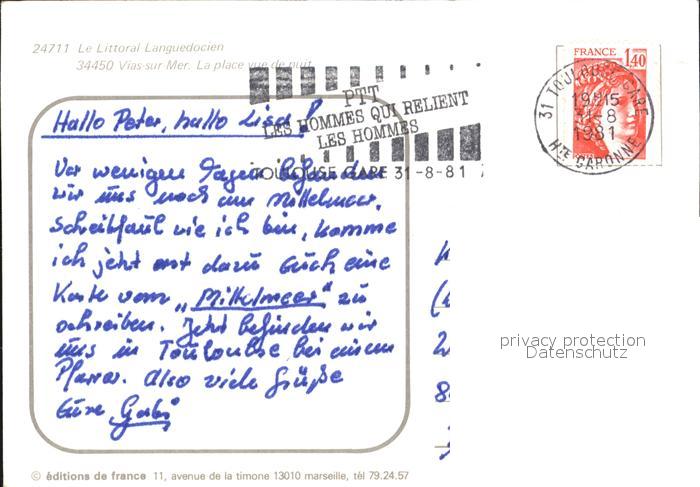 24711 Le Littoral Languedocien
34450 Vias-sur-Mer. La place vue de nuit
PTT
LES HOMMES QUI RELIENT
LES HOMMES
TOULOUSE GARE 31-8-81
FRANCE 1,40
31 TOULOUSE GARE
19H15
31-8
1981
HTE GARONNE
Hallo Peter, hallo Lisa!
Vor wenigen Tagen befanden
wir uns noch am Mittelmeer.
Schreibfaul wie ich bin, komme
ich jetzt erst dazu Euch eine
Karte vom „Mittelmeer" zu
schreiben. Jetzt befinden wir
uns in Toulouse bei einem
Pfarrer. Also viele Grüße
Eure „Gabi"
privacy protection
Datenschutz
© éditions de france 11, avenue de la timone 13010 marseille, tél 79.24.57